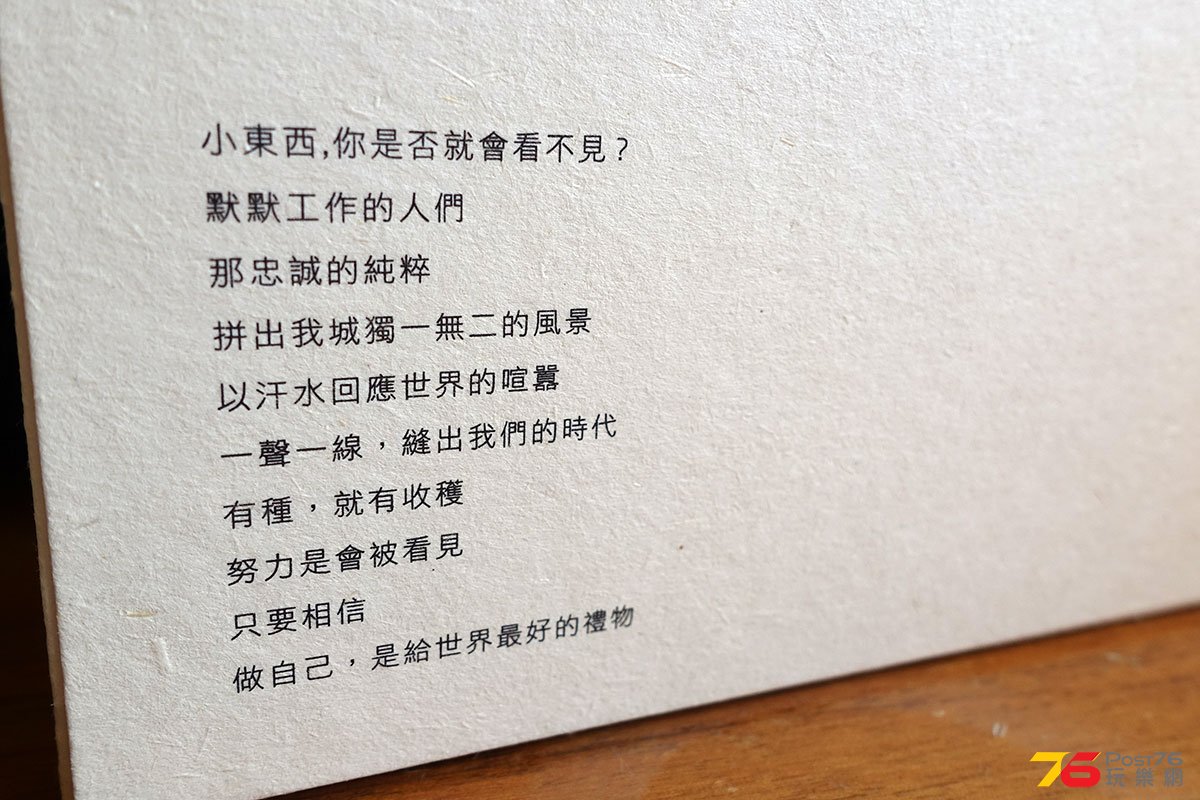 小東西,你是否就會看不見?
默默工作的人們
那忠誠的純粹
拼出我城獨一無二的風景
以汗水回應世界的喧囂
一聲一線，縫出我們的時代
有種，就有收穫
努力是會被看見
只要相信
做自己，是給世界最好的禮物
76 Post76
玩樂網